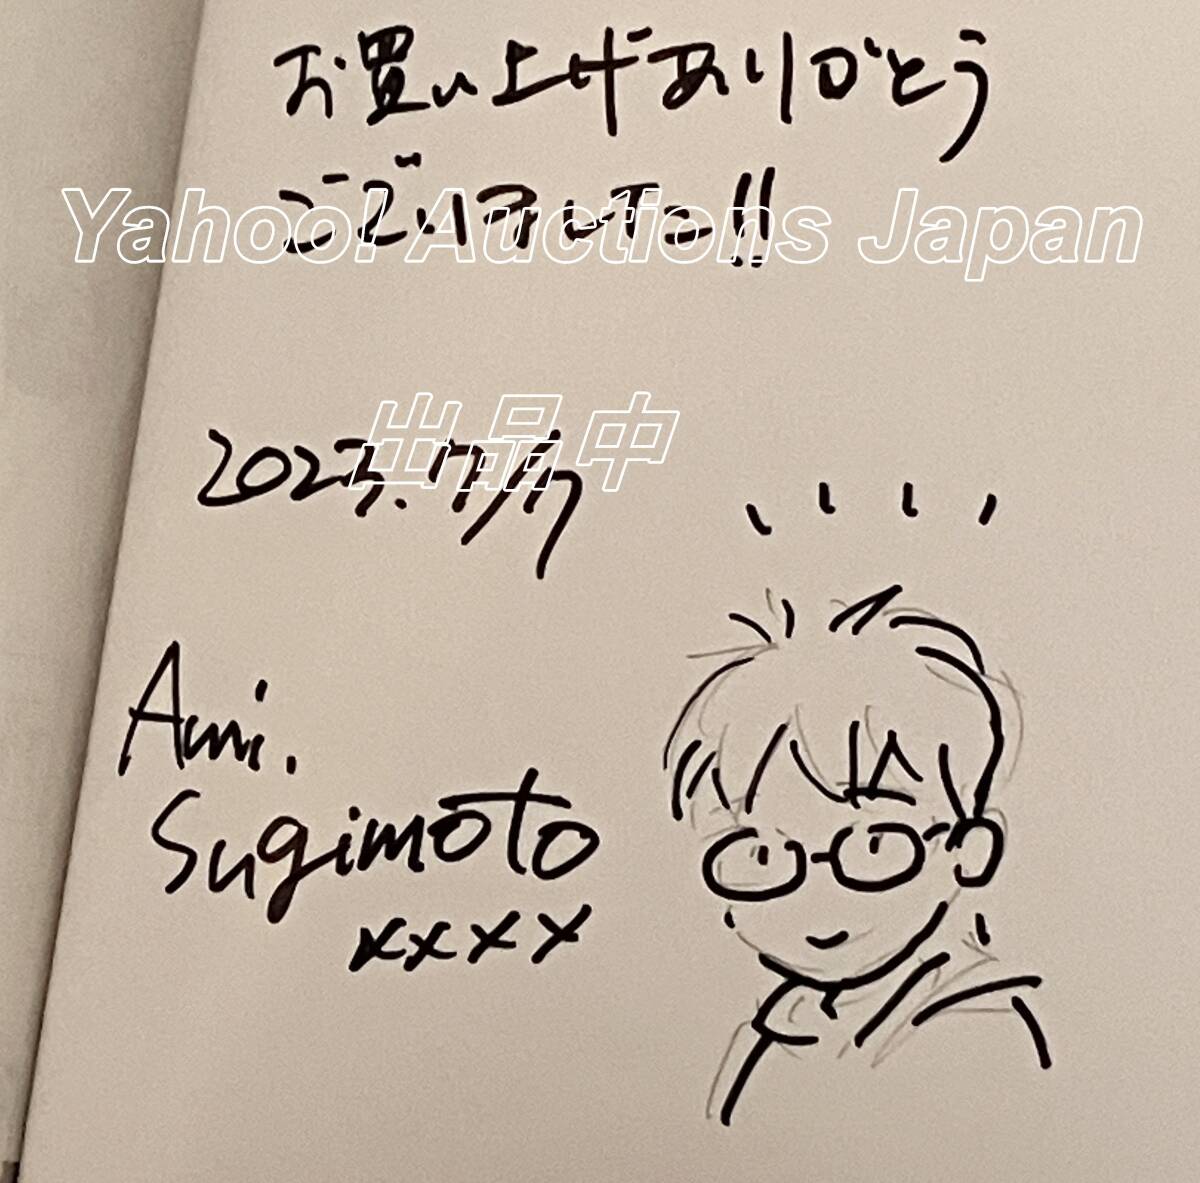 お買い上げありがとう
ございました!!
Yahoo! Auctions Japan
出品中
2023.7/7
Ami.
Sugimoto
xxxx